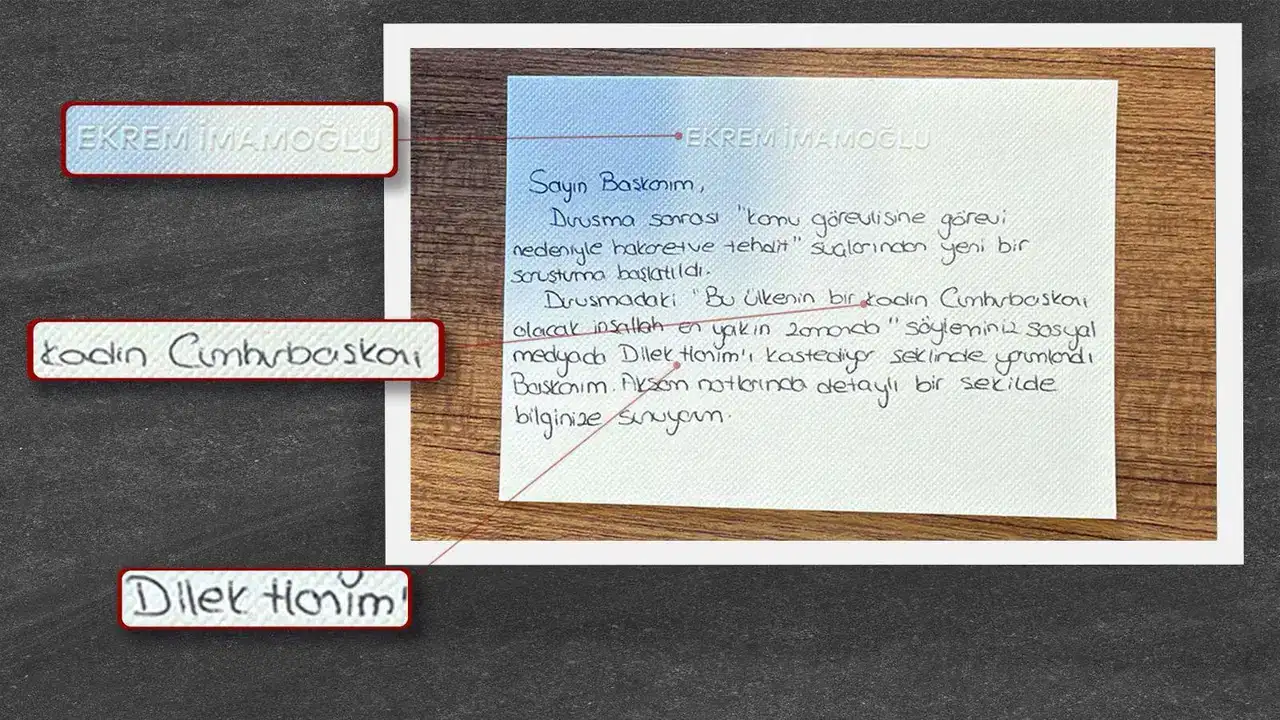 EKREM İMAMOĞLU
EKREM İMAMOĞLU
Sayın Başkanım,
Duruşma sonrası "kamu görevlisine görevi
nedeniyle hakaret ve tehdit" suçlarından yeni bir
soruşturma başlatıldı.
Duruşmadaki "Bu ülkenin bir kadın Cumhurbaşkanı
olacak inşallah en yakın zamanda" söyleminiz sosyal
medyada Dilek Hanım'ı kastediyor şeklinde yorumlandı
Başkanım. Akşam notlarında detaylı bir şekilde
bilginize sunuyorum.
kadın Cumhurbaşkanı
Dilek Hanım'